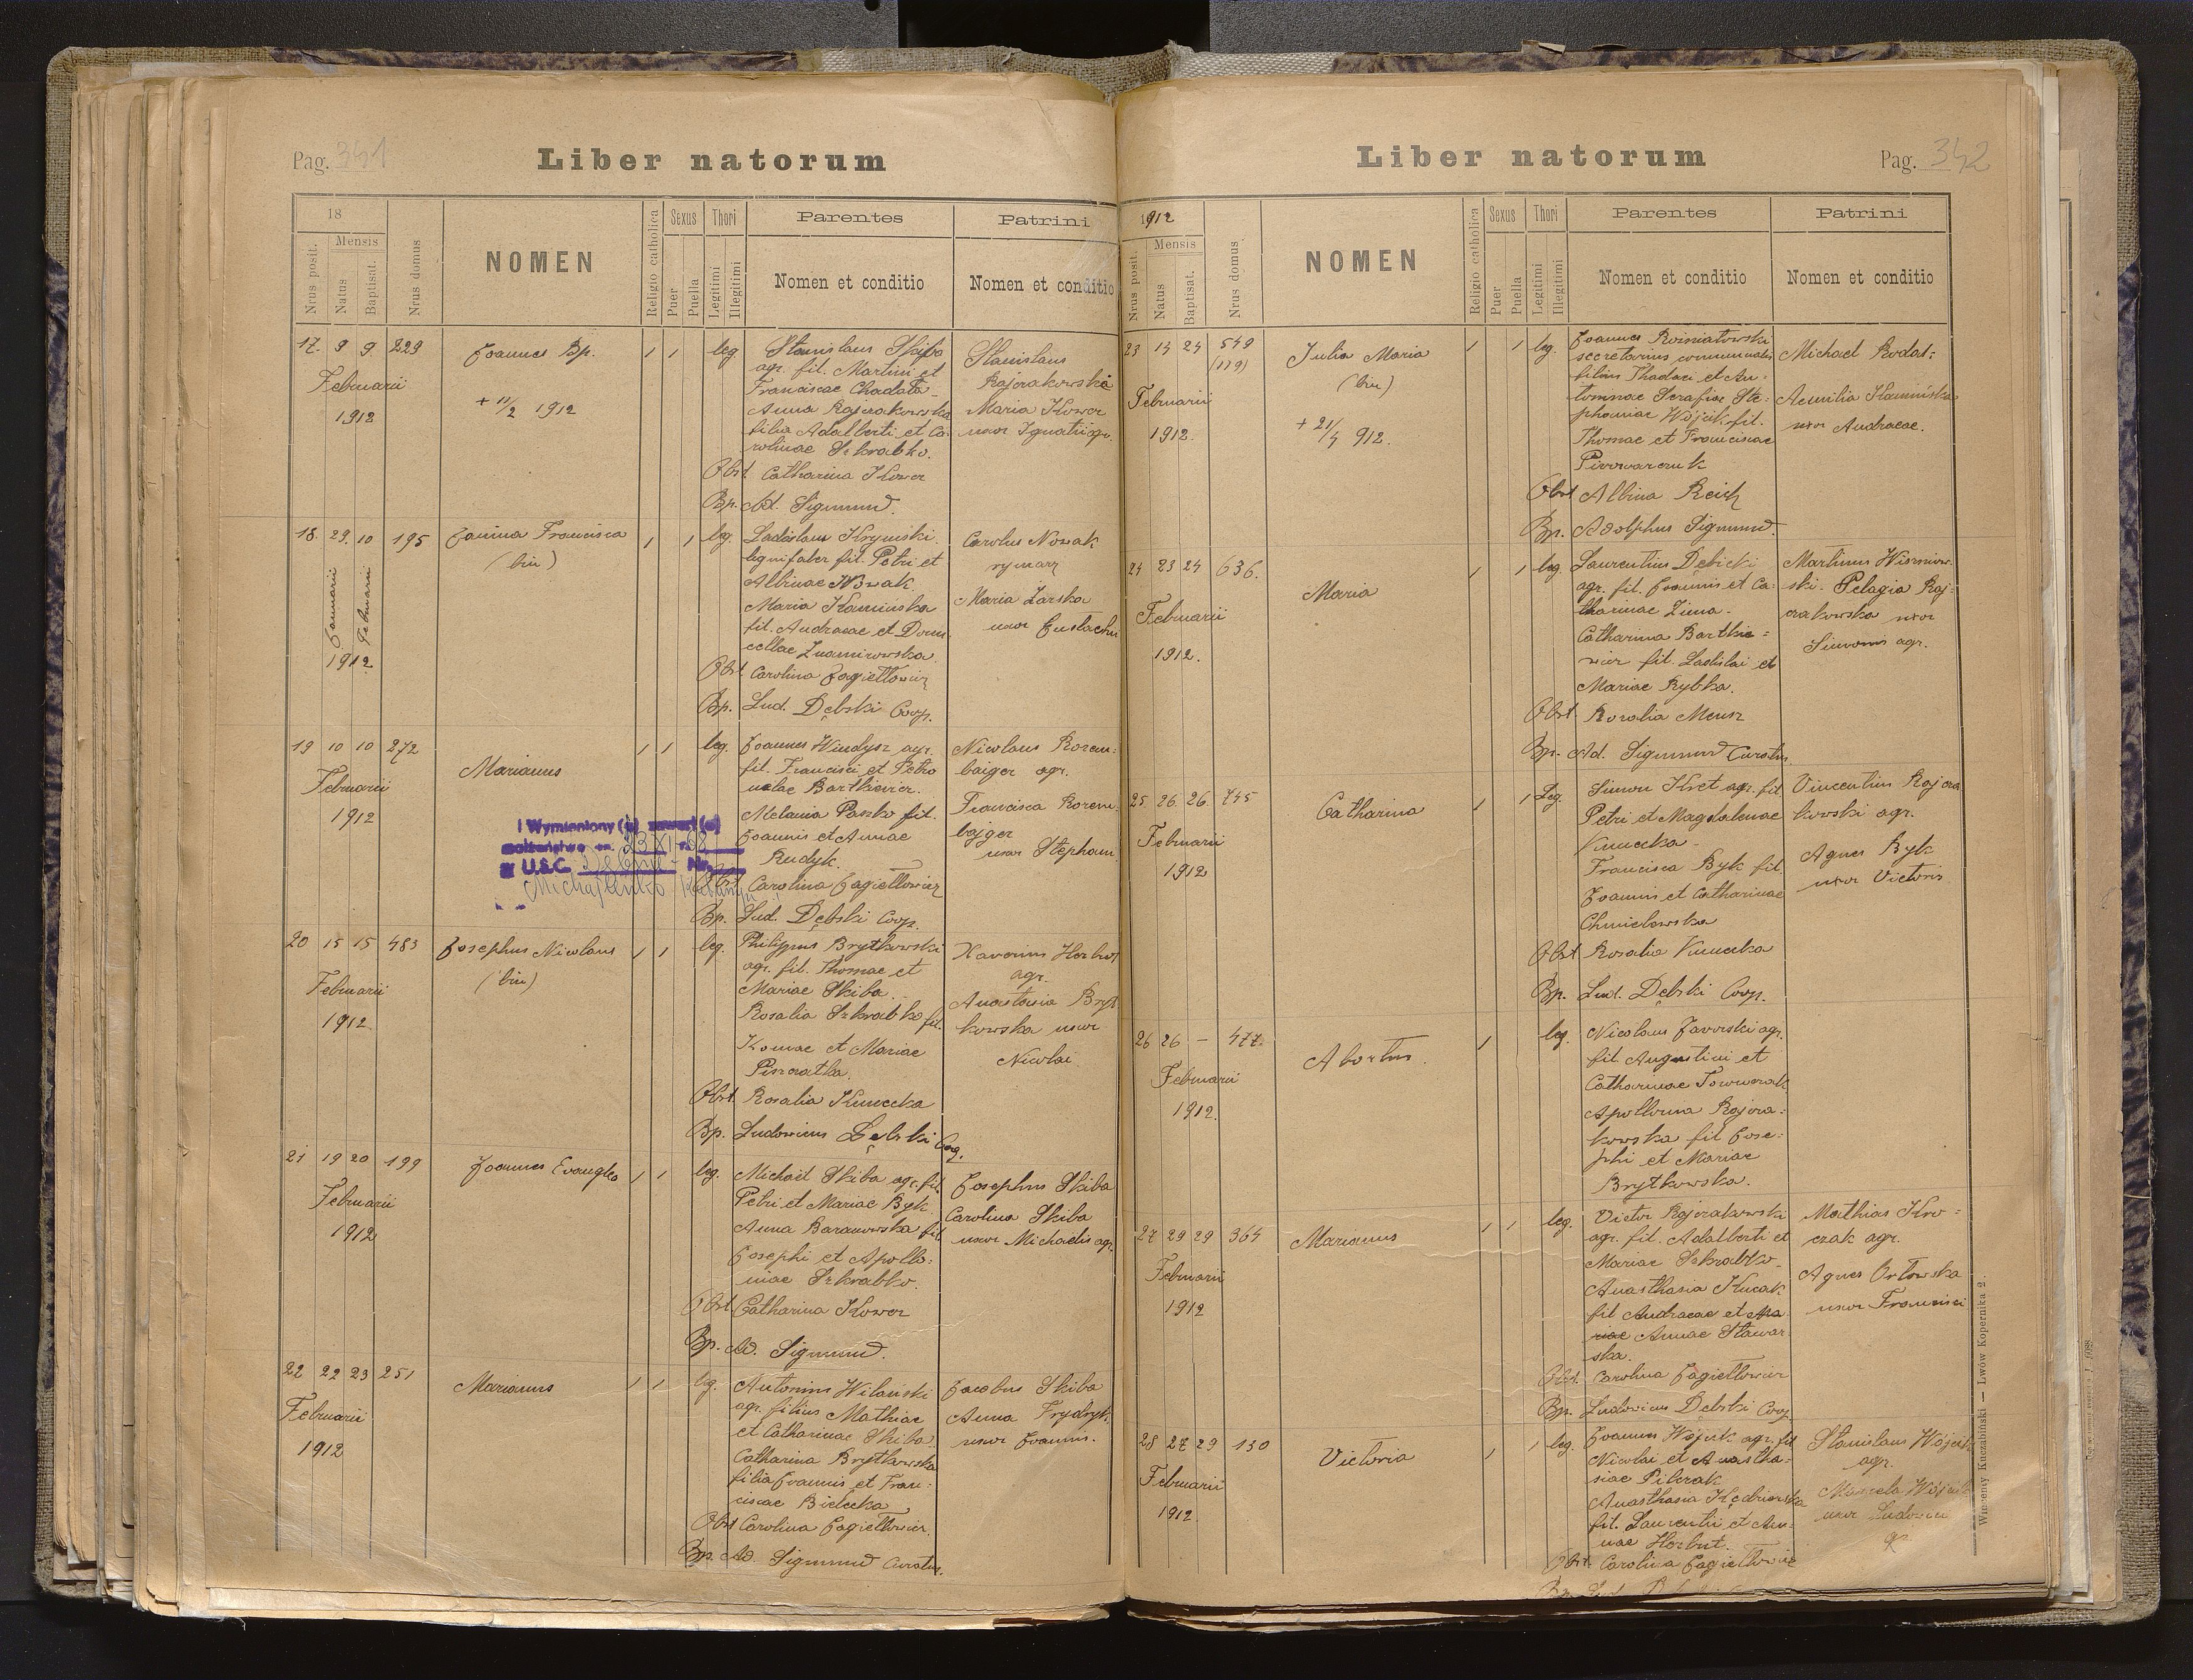 Pag. 341
Liber natorum
18
Mensis
Nrus posit.
Natus
Baptisat.
Nrus domus
NOMEN
Religio catholica
Sexus
Puer
Puella
Thori
Legitimi
Illegitimi
Parentes
Nomen et conditio
Patrini
Nomen et conditio
17. 9 9. 229
Februarii
1912
Joannes Bp.
+ 11/2 1912
1 1 leg.
Stanislaus Skiba
agr. fil. Martini et
Franciscae Chadala
Anna Rajzakowska
filia Adalberti et Ca-
rolinae Szkrabko.
Obst. Catharina Kower
Bp. Ad. Sigmund.
Stanislaus
Maria Kower
uxor Ignatii agr.
18. 29. 10 195
Januarii
Februarii
1912
Janina Francisca
(bin)
1 1 leg.
Ladislaus Krynski
lignifaber fil. Petri et
Albinae Nowak
Maria Kaminska
fil. Andreae et Dom
cellae
Obst. Carolina Jagiełłowicz
Bp. Lud. Dębski Coop.
Carolus Nowak
rymarz
Maria Zarska
uxor Eustachii
19 10 10 272
Februarii
1912
Marianus
1 1 leg.
Joannes Windysz agr.
fil. Francisci et Petro
nelae Bartkiewicz.
Melania Paszko fil.
Joannis et Annae
Rudyk.
Obst. Carolina Jagiełłowicz
Bp. Lud. Dębski Coop.
Nicolaus Rozen-
baiger agr.
Francisca Rozen
bajger
uxor Stephani
Wymieniony (a) zawarł (a)
małżeństwo dn. 23 XI
w U.S.C. Nr.
20 15 15 483
Februarii
1912.
Josephus Nicolaus
(bin)
1 1 leg.
Philippus Brytkowski
agr. fil. Thomae et
Mariae Skiba.
Rosalia Szkrabko fil.
Thomae et Mariae
Obst. Rosalia Kunecka
Bp. Ludovicus Dębski Coop.
Xaverius Horbut
agr.
Anastasia Bryt
kowska uxor
Nicolai
21 19 20 199
Februarii
1912
Joannes
1 1 leg.
Michaël Skiba agr. fil.
Petri et Mariae Byk.
Anna Baranowska fil.
Josephi et Apollo-
niae Szkrabko.
Obst. Catharina Kower
Bp. Ad. Sigmund.
Josephus Skiba
Carolina Skiba
uxor Michaelis agr.
22 22 23 251
Februarii
1912
Marianus
1 1 leg.
Antonius Wilanski
agr. filius Mathiae
et Catharinae Skiba.
Catharina Brytkowska
filia Joannis et Fran-
ciscae Bielecka
Obst. Carolina Jagiełłowicz.
Bp. Ad. Sigmund Curatus.
Jacobus Skiba
Anna Frydryk
uxor Joannis.
Liber natorum
Pag. 342
1912
Mensis
Nrus posit.
Natus
Baptisat.
Nrus domus
NOMEN
Religio catholica
Sexus
Puer
Puella
Thori
Legitimi
Illegitimi
Parentes
Nomen et conditio
Patrini
Nomen et conditio
23 14 24 549
(119)
Februarii
1912.
Julia Maria
(bin)
+ 21/4 912.
1 1 leg.
Joannes Rozniatowski
secretarius communalis
filius Thadaei et An-
tominae Serafiae Ste-
phaniae Wójcik fil.
Thomae et Franciscae
Piwowarczuk
Obst Albina Reich
Bp. Adolphus Sigmund.
Michael Rodat-
Aemilia Kamińska
uxor Andreae.
24 23 24 636.
Februarii
1912.
Maria
1 1 leg.
Laurentius Dębicki
agr. fil. Joannis et Ca-
tharinae Zima.
Catharina Bartkie-
wicz fil. Ladislai et
Mariae Rybka.
Obst. Rosalia Meusz
Bp. Ad. Sigmund Curatus.
Martinus Wisniew
ski. Pelagia Raj-
zakowska uxor
Simonis agr.
25 26 26. 745
Februarii
1912
Catharina
1 1 Leg.
Simon Kret agr. fil
Petri et Magdalenae
Kunecka.
Francisca Byk fil.
Joannis et Catharinae
Chmielowska
Obst. Rosalia Kunecka
Bp. Lud. Dębski Coop.
Vincentius Rajza
kowski agr.
Agnes Byk
uxor Victoris
26 26 — 477.
Februarii
1912.
Abortus.
1 leg.
Nicolaus Jaworski agr.
fil. Augustini et
Catharinae
Apollonia Rajza-
kowska fil Jose-
phi et Mariae
Brytkowska.
27 29 29 364
Februarii
1912
Marianus
1 1 leg.
Victor Rajzakowski
agr. fil. Adalberti et
Mariae Szkrabko
Anasthasia Kucak
fil Andreae et Ma
riae Annae Stawar
ska.
Obst. Carolina Jagiełłowicz
Bp. Ludovicus Dębski Coop.
Mathias Kro-
czak agr.
Agnes Orłowska
uxor Francisci
28 27 29 130
Februarii
1912.
Victoria
1 1 leg.
Joannes Wójcik agr. fil
Nicolai et Anastha-
siae Pilczak
Anasthasia Kędzierska
fil. Laurentii et An-
nae Horbut.
Obst. Carolina Jagiełłowicz
Stanislaus Wójcik
agr.
Marcela Wójcik
uxor Ludovici
Wincenty Kuczabiński — Lwów Kopernika 2.